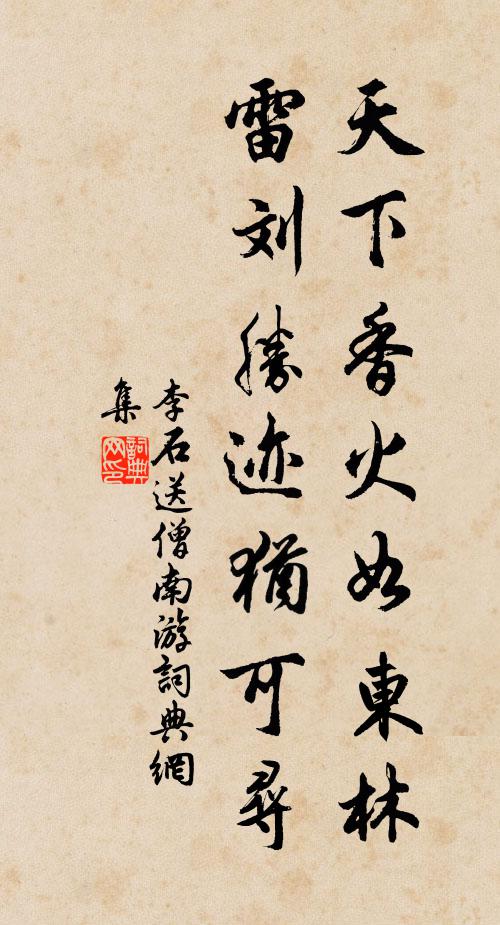 天下香火如東林
雷刘勝迹猶可尋
李石送僧南游詞典網
集
詞典网印